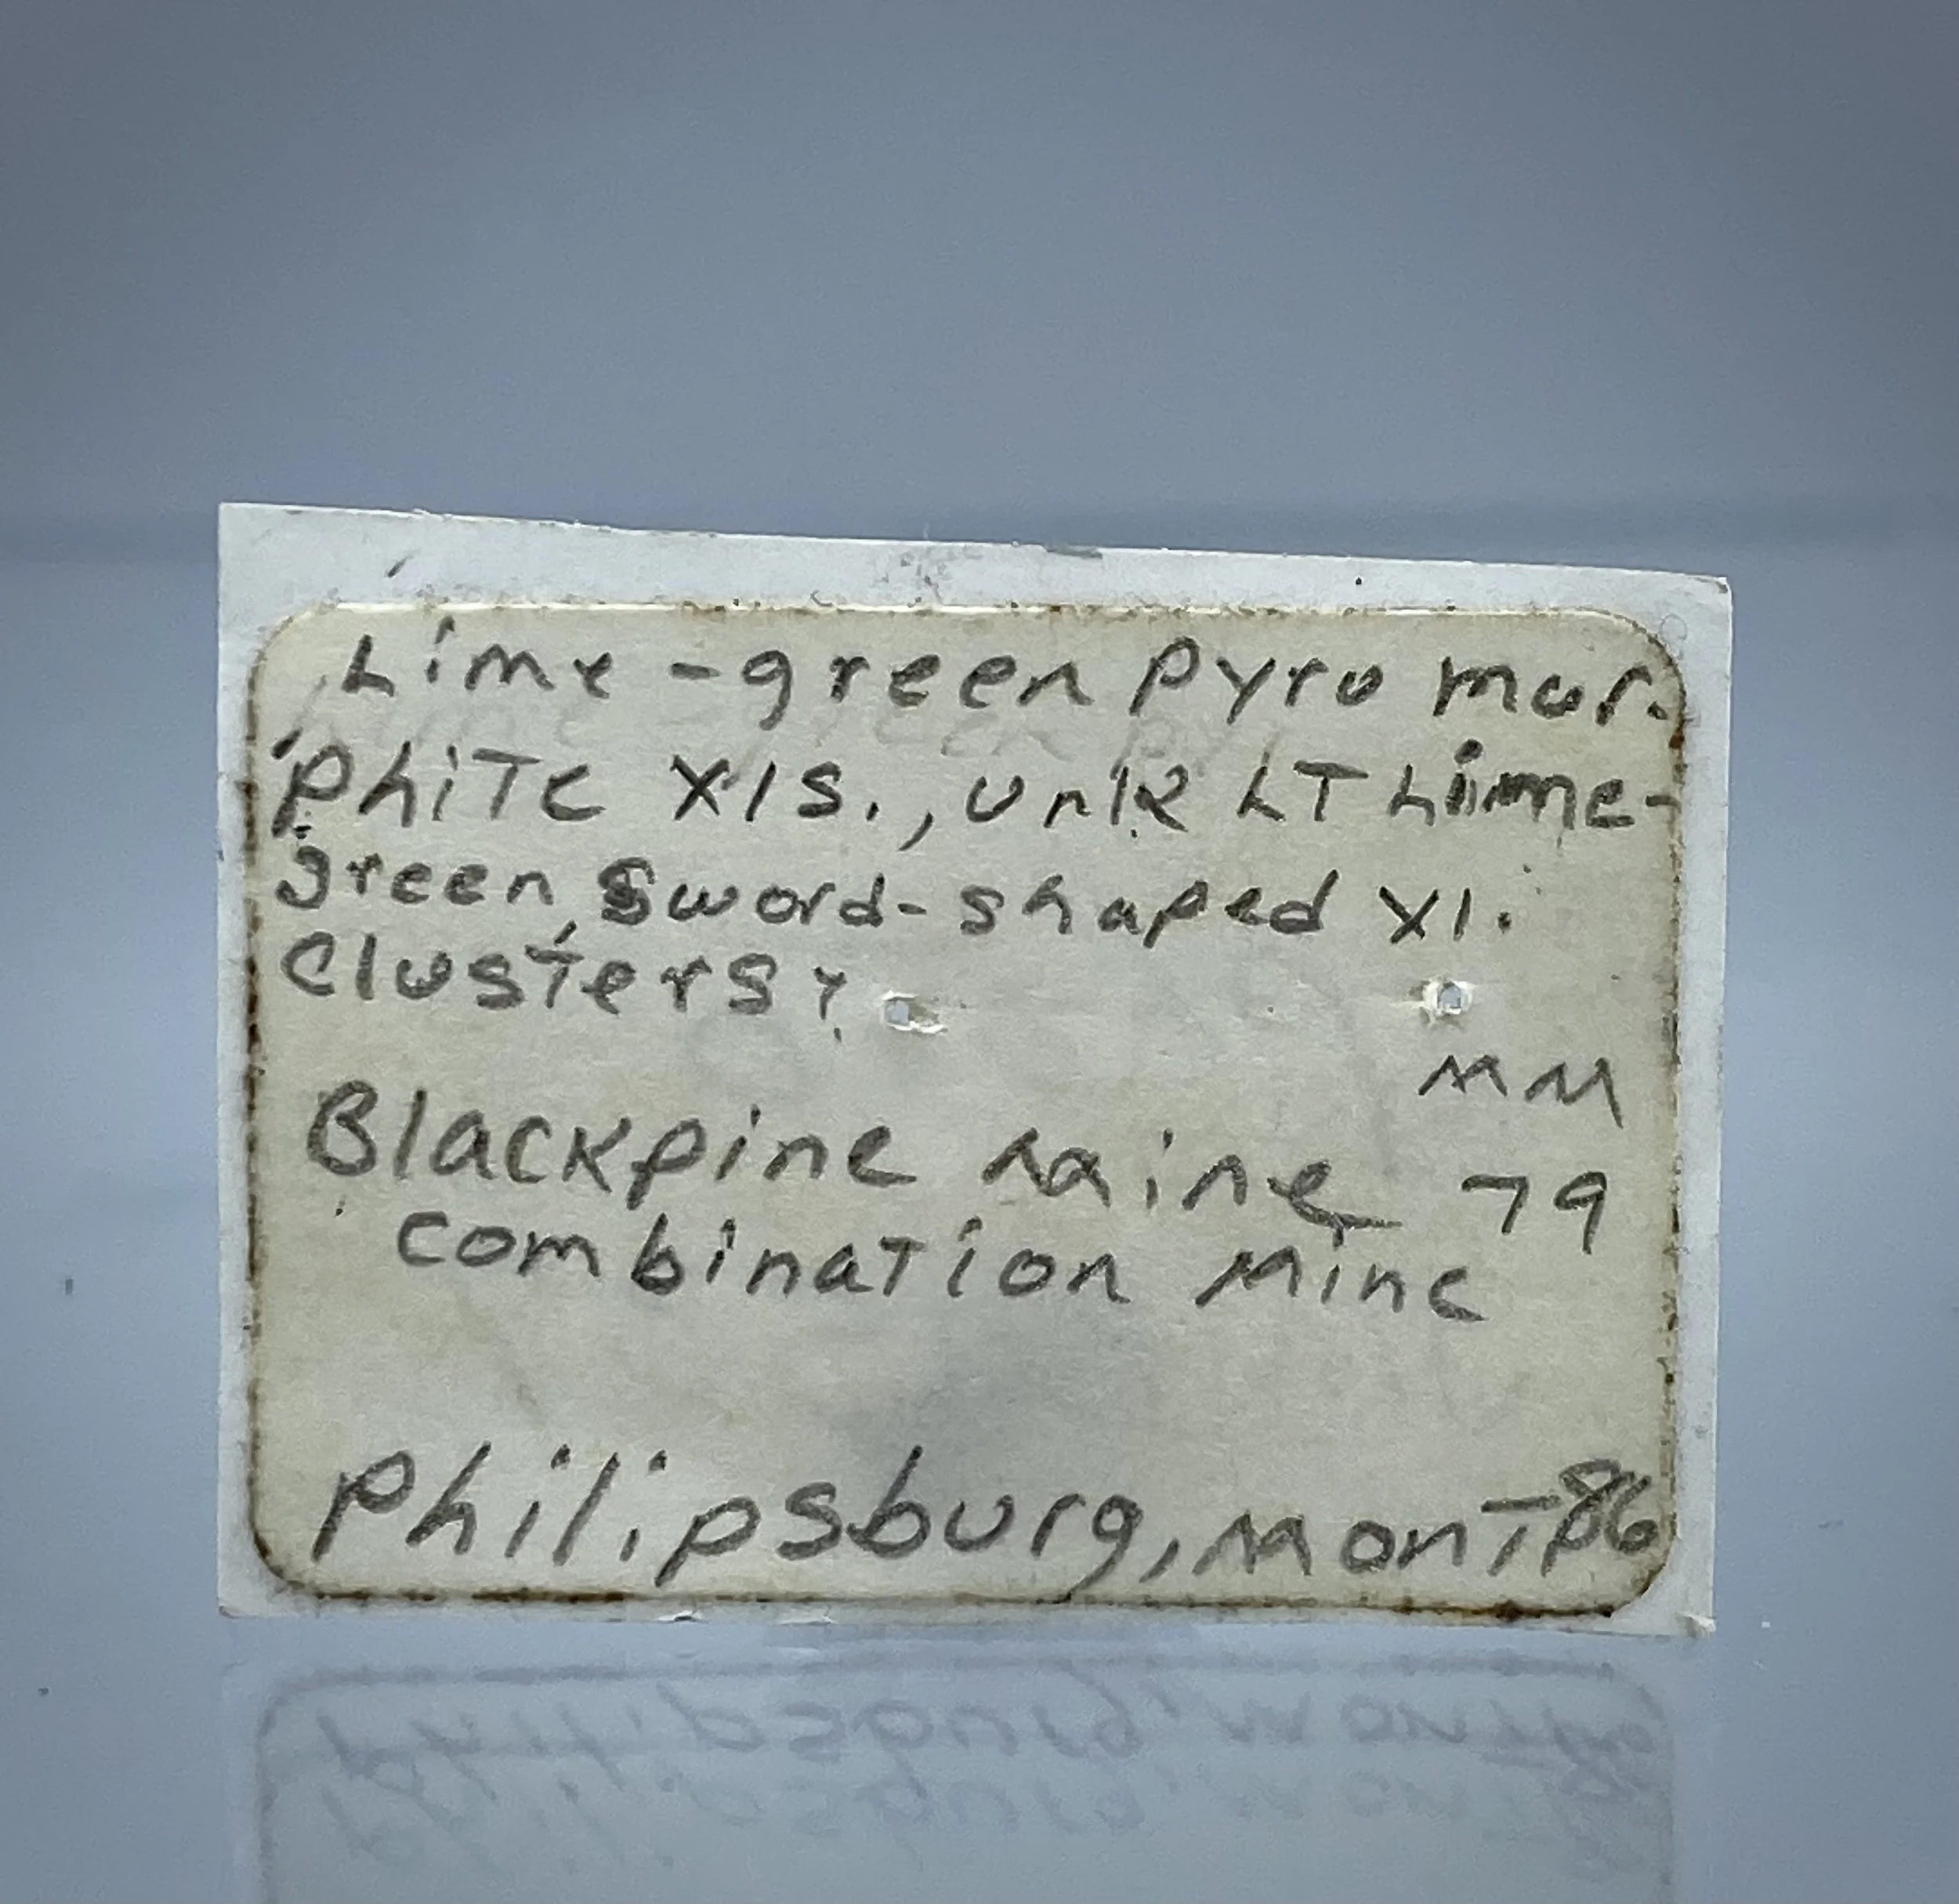 Lime-green Pyro mor-
phite xls., unk LT Lime-
green, sword-shaped xl.
clusters?
MM
Blackpine Mine 79
combination Mine
Philipsburg, Mont 86